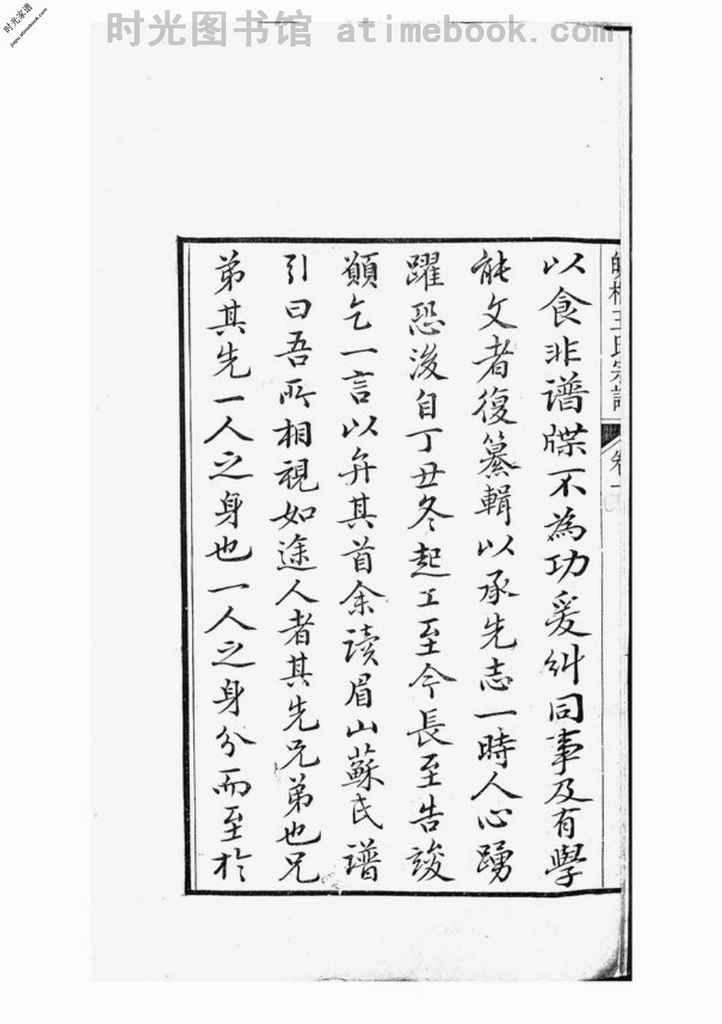 时光图书馆 atimebook.com
时光家谱
王氏宗譜
卷一
以食非谱牒不為功爰糾同事及有學
能文者復纂輯以承先志一時人心踴
躍恐後自丁丑冬起工至今長至告竣
顧乞一言以弁其首余读眉山蘇氏譜
引曰吾所相視如途人者其先兄弟也兄
弟其先一人之身也一人之身分而至於